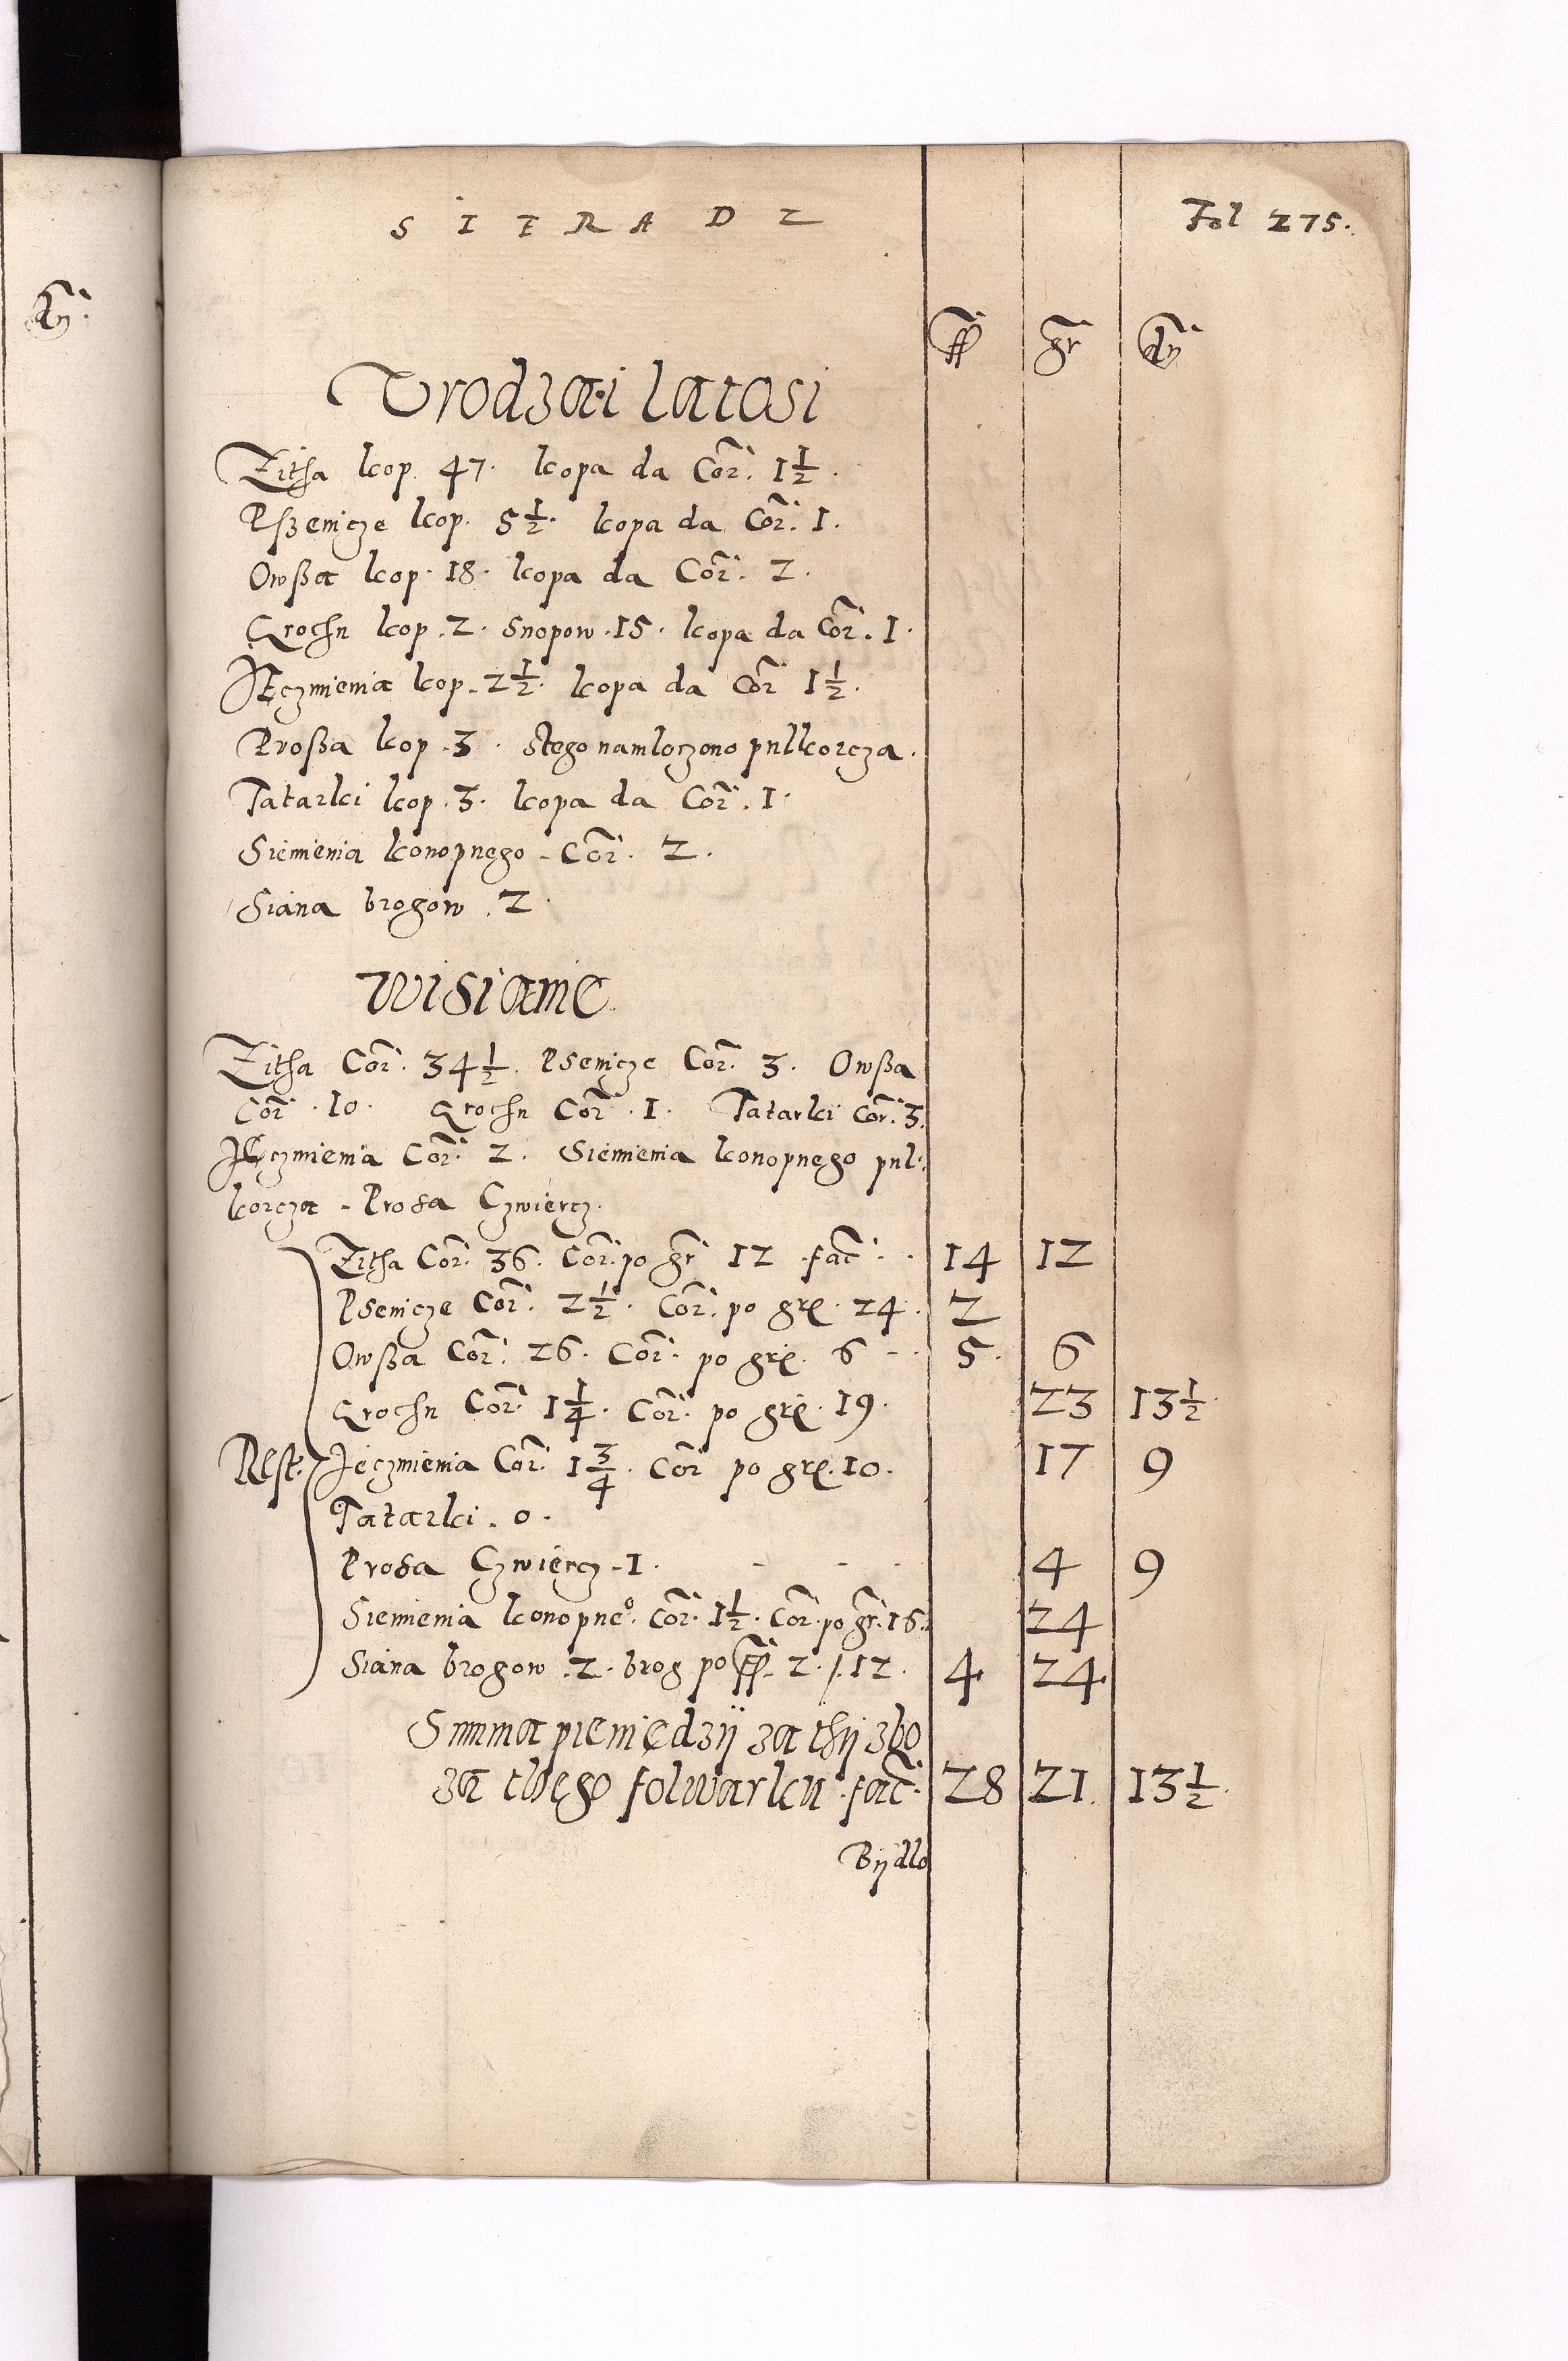 dn̄
SIERADZ
Fol 275.
ff gr dn̄
Vrodzai latosi
Zitha kop. 47. kopa da Cor. 1½.
Pszenicze kop. 5½. kopa da Cor. 1.
Owßa kop. 18. kopa da Cor. 2.
Grochu kop. 2. Snopow. 15. kopa da Cor. 1.
Jęczmienia kop. 2½. kopa da Cor 1½.
Proßa kop. 3. stego namloczono pulkorcza.
Tatarki kop. 3. kopa da Cor. 1.
Siemienia konopnego. Cor. 2.
Siana brogow. 2.
Wisianie
Zitha Cor. 34½. Psenicze Cor. 3. Owßa
Cor. 10. Grochu Cor. 1. Tatarki Cor. 3.
Jęczmienia Cor. 2. Siemienia konopnego pul:
korcza. Prosa Czwiercz.
Zitha Cor. 36. Cor. po gr 12 fac. 14 12
Psenicze Cor. 2½. Cor. po grę. 24. 2
Owßa Cor. 26. Cor. po grę. 6 5. 6
Grochu Cor. 1¼. Cor. po grę. 19. 23 13½.
Rest. Jęczmienia Cor. 1¾. Cor po grę. 10. 17 9
Tatarki. 0.
Prosa Czwiercz. 1. 4 9
Siemienia konopne°. Cor. 1½. Cor. po gr. 16. 24
Siana brogow. 2. brog po ff. 2. /. 12. 4. 24.
Summa pieniędzÿ za thÿ zbo
za thego folwarku. fac. 28 21. 13½.
Bÿdlo